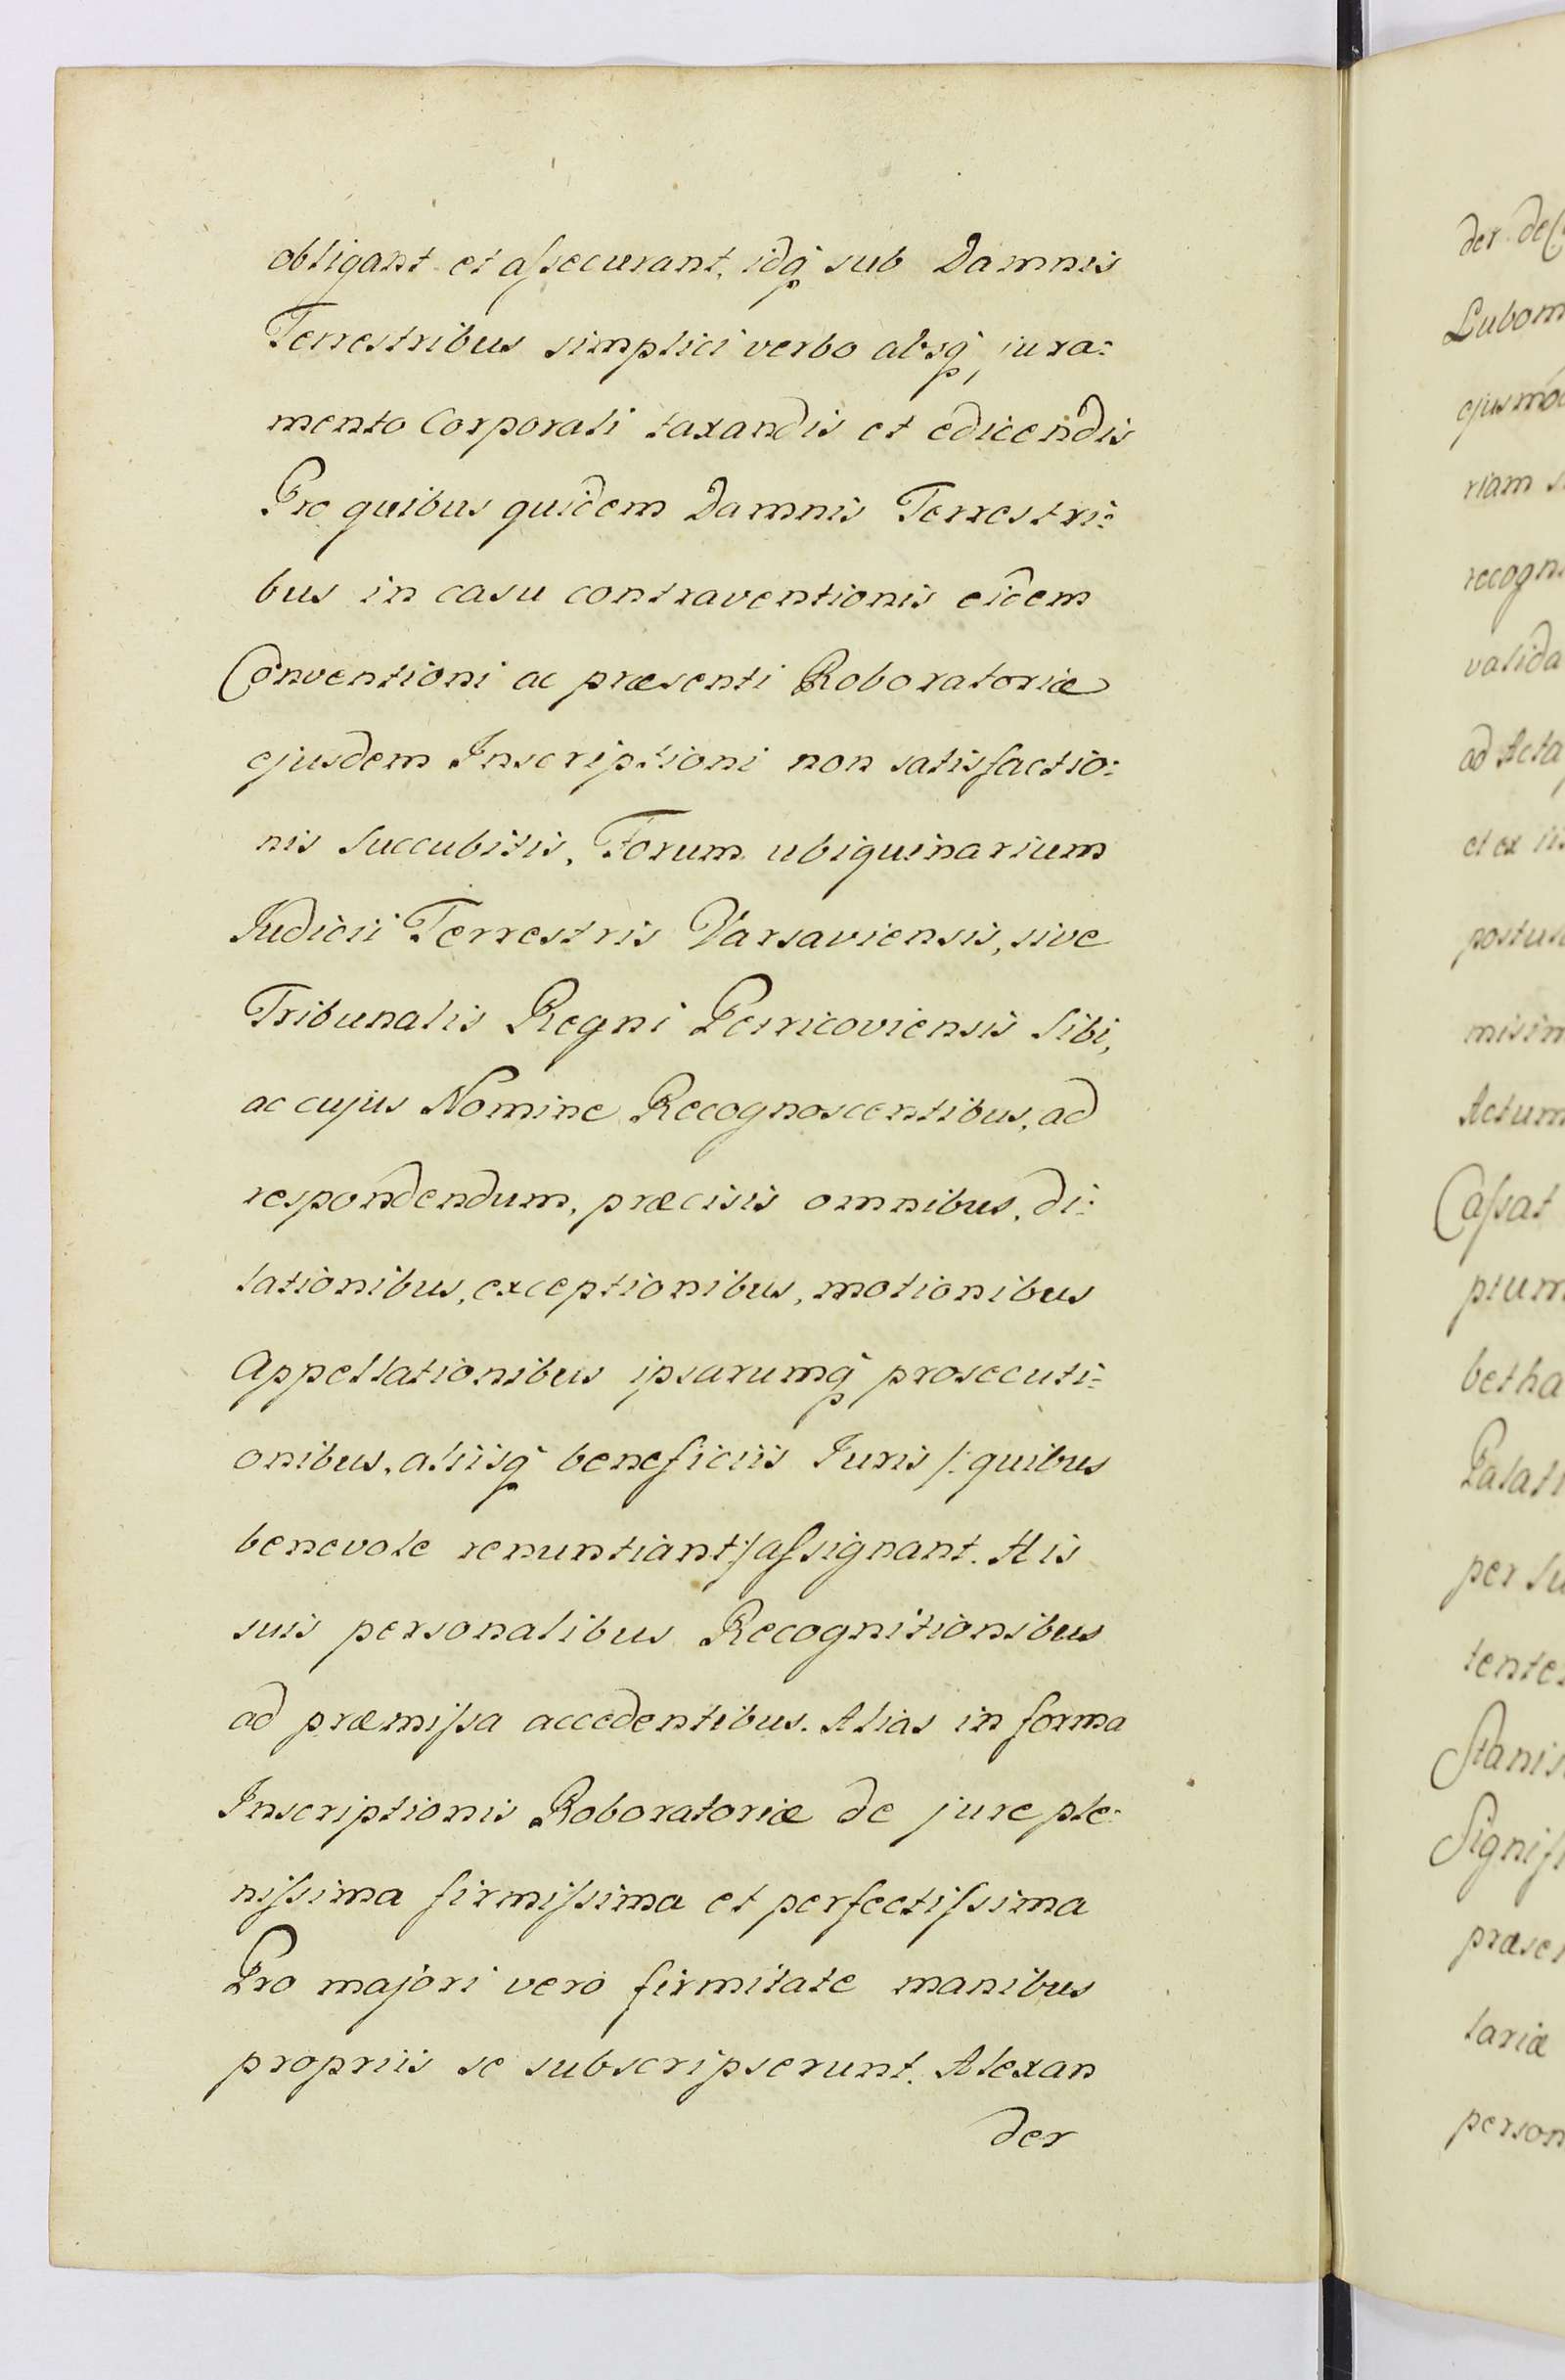 obligant et assecurant, idq́ sub Damnis
Terrestribus simplici verbo absq́, jura:
mento Corporali taxandis et edicendis
Pro quibus quidem Damnis Terrestri:
bus in casu contraventionis eidem
Conventioni ac præsenti Roboratoriæ
ejusdem Inscriptioni non satisfactio:
nis succubitis, Forum ubiquinarium
Judicii Terrestris Varsaviensis, sive
Tribunalis Regni Petricoviensis sibi,
ac cujus Nomine Recognoscentibus, ad
respondendum, præcisis omnibus, di:
lationibus, exceptionibus, motionibus
Appellationibus ipsarumq́ prosecuti:
onibus, aliisq́ beneficiis Juris /: quibus
benevole renuntiant :/ assignant. His
suis personalibus Recognitionibus
ad præmissa accedentibus. Alias in forma
Inscriptionis Roboratoriæ de jure ple:
nissima firmissima et perfectissima
Pro majori vero firmitate manibus
propriis se subscripserunt. Alexan
der
der de C
Lubom
ejusmod
riam s
recogni
valida
ad Acta
et ex
postu
misim
Actum
Cassat
ptum
betha
Palati
per Su
tentes
Stanis
Signifi
præsen
lariæ
person